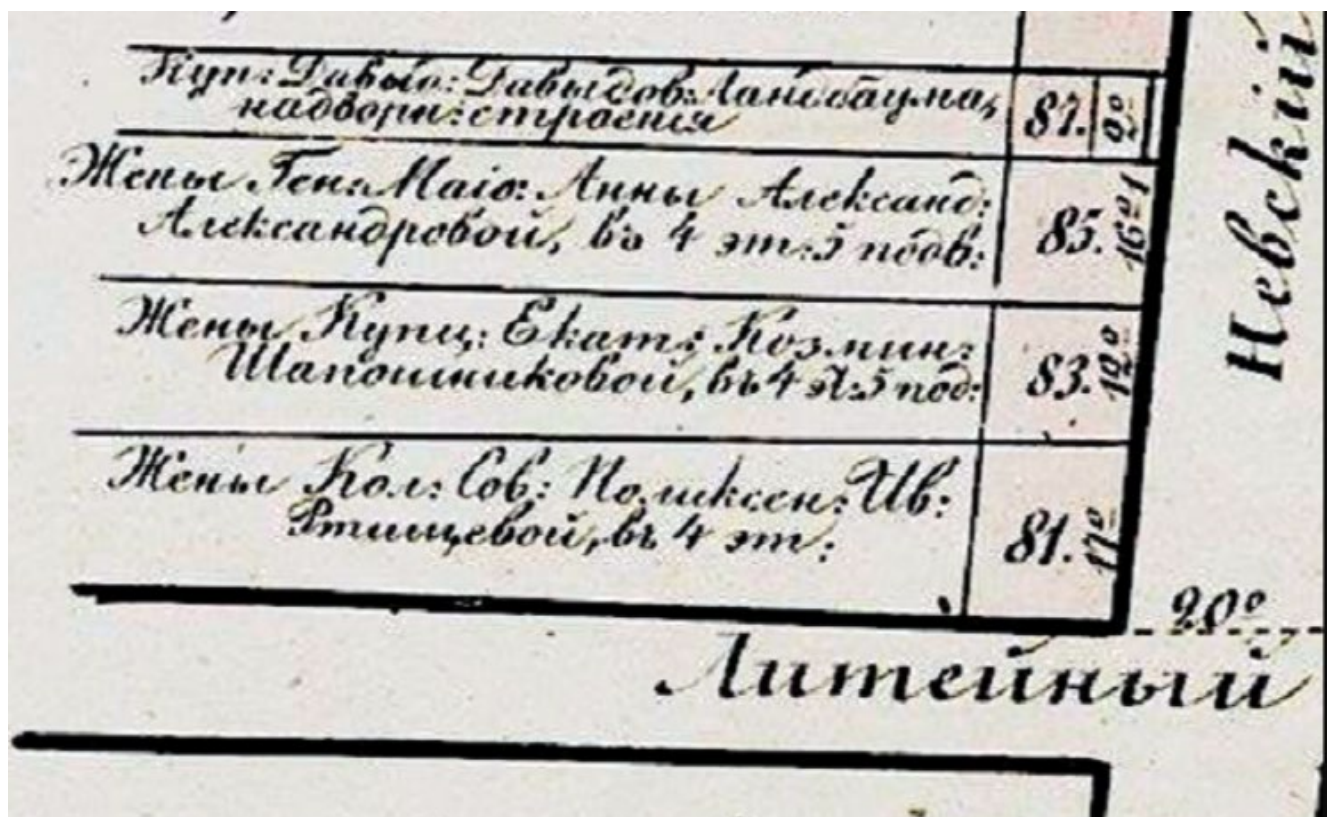 Куп: Давыд: Давыдов: Ландсбаума,
надворн: строения
87. 2°
Жены Ген: Маіо: Анны Александ:
Александровой, въ 4 эт: 5 подв:
85. 16° 1
Жены Купц: Екат: Козмин:
Шапошниковой, въ 4 эт: 5 под:
83. 12°
Жены Кол: Сов: Поликсен: Ив:
Ртищевой, въ 4 эт:
81. 17°
20°
Литейный
Невскій